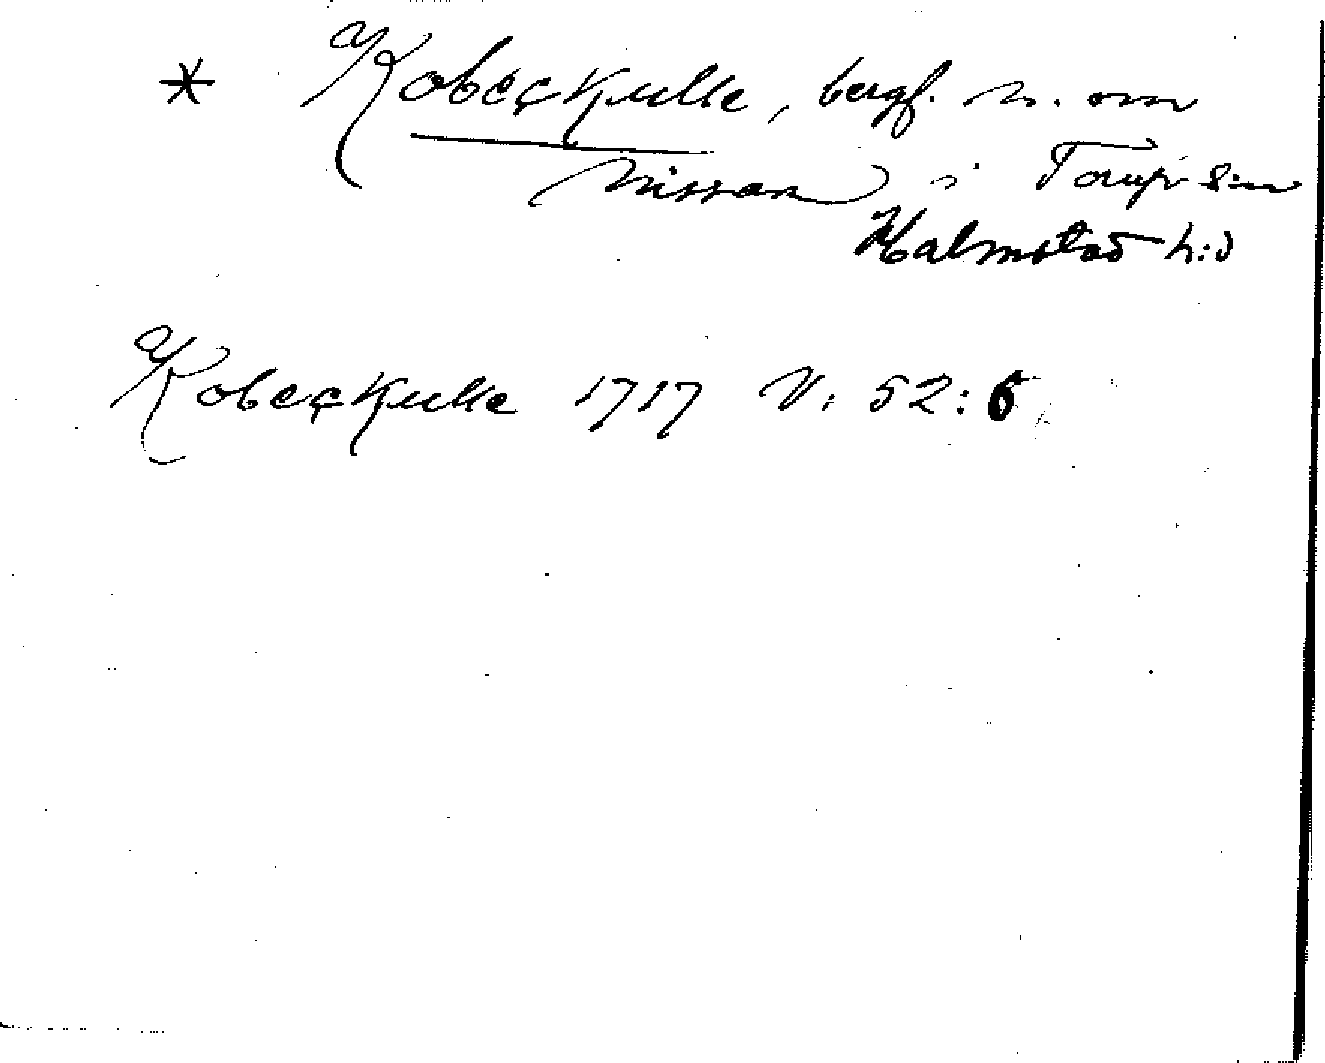 * Kobeckulle, bergf. n. om
Nissan i Torups sn
Halmstad h:d
Kobeckulle 1717 V: 52:6